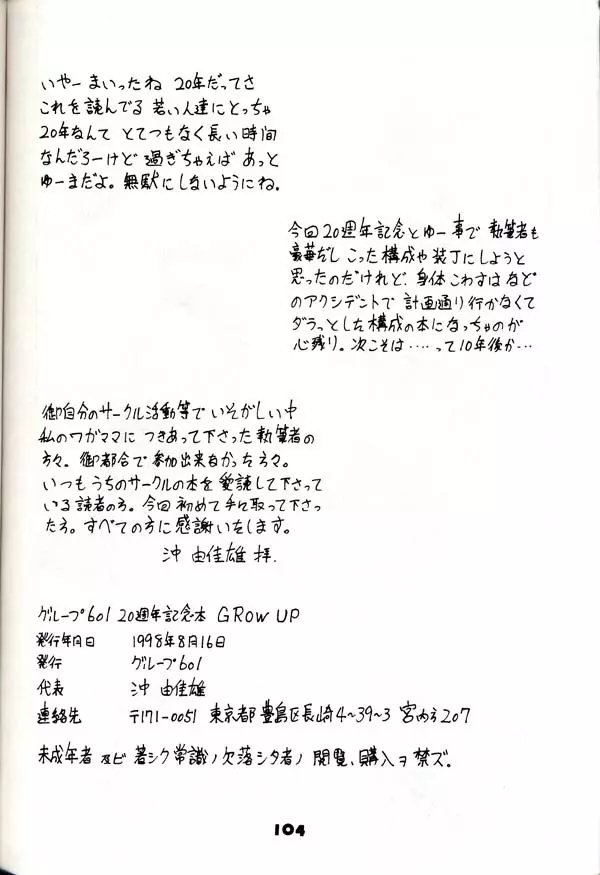 いやー まいったね 20年だってさ
これを読んでる 若い人達にとっちゃ
20年なんて とてつもなく長い時間
なんだろーけど 過ぎちゃえば あっと
ゆーまだよ。無駄にしないようにね。
今回20週年記念とゆー事で 執筆者も
豪華だし こった構成や装丁にしようと
思ったのだけれど、身体こわすは など
のアクシデントで 計画通り行かなくて
ダラっとした構成の本になっちゃのが
心残り。次こそは……って10年後か…
御自分のサークル活動等で いそがしい中
私のワガママに つきあって下さった執筆者の
方々。御都合で参加出来なかった方々。
いつもうちのサークルの本を愛読して下さって
いる読者の方。今回初めて手に取って下さっ
た方。すべての方に感謝いたします。
沖 由佳雄 拝.
グループ601 20週年記念本 GROW UP
発行年月日 1998年8月16日
発行 グループ601
代表 沖 由佳雄
連絡先 〒171-0051 東京都豊島区長崎4~39~3 207
未成年者 及ビ 著シク常識ノ欠落シタ者ノ 閲覧、購入ヲ禁ズ。
104